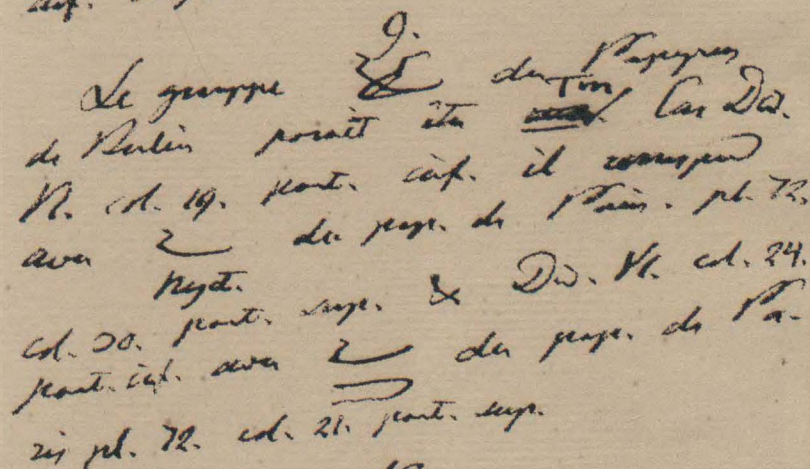 9.
Le gruppe du Papyrus
de Berlin paroît être Tm Car Div.
VI. col. 19. part. inf. il correspond
avec du pap. de Paris. pl. 72.
col. 20. part. sup. & Div. VI. col. 24.
part. inf. avec du pap. de Pa-
ris pl. 72. col. 21. part. sup.